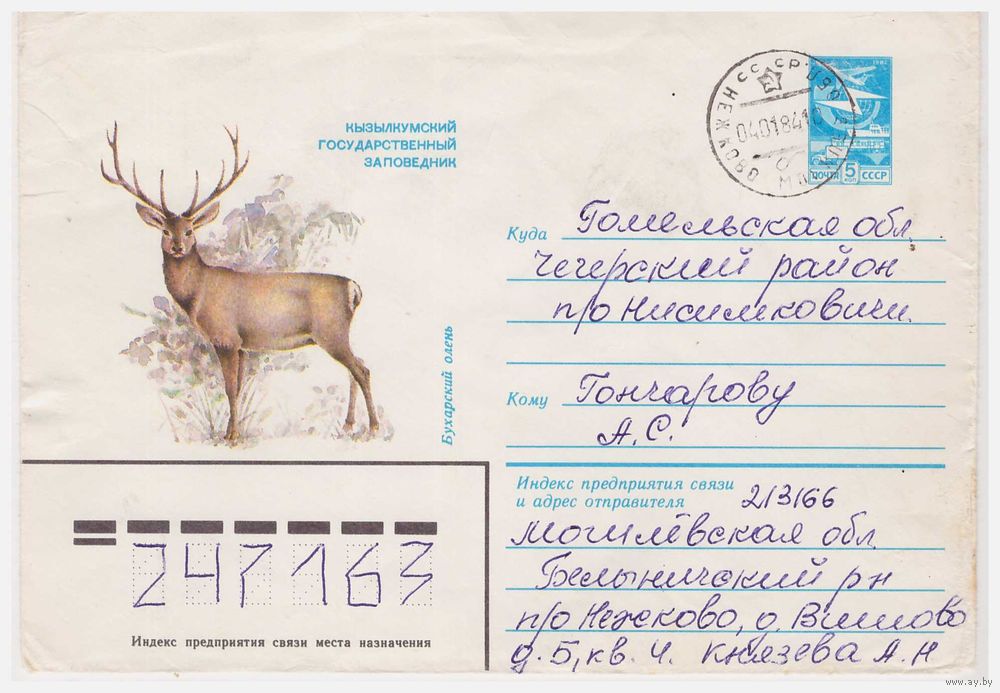 КЫЗЫЛКУМСКИЙ
ГОСУДАРСТВЕННЫЙ
ЗАПОВЕДНИК
Бухарский олень
1982
ПОЧТА 5 КОП СССР
04018410
Куда Гомельская обл.
Чечерский район
п/о Нисимковичи
Кому Гончарову
А.С.
Индекс предприятия связи
и адрес отправителя 213166
Могилёвская обл
Белыничский рн
п/о Нежково, д. Вишово
д. 5, кв. 4. Князева А.Н
247163
Индекс предприятия связи места назначения
www.ay.by